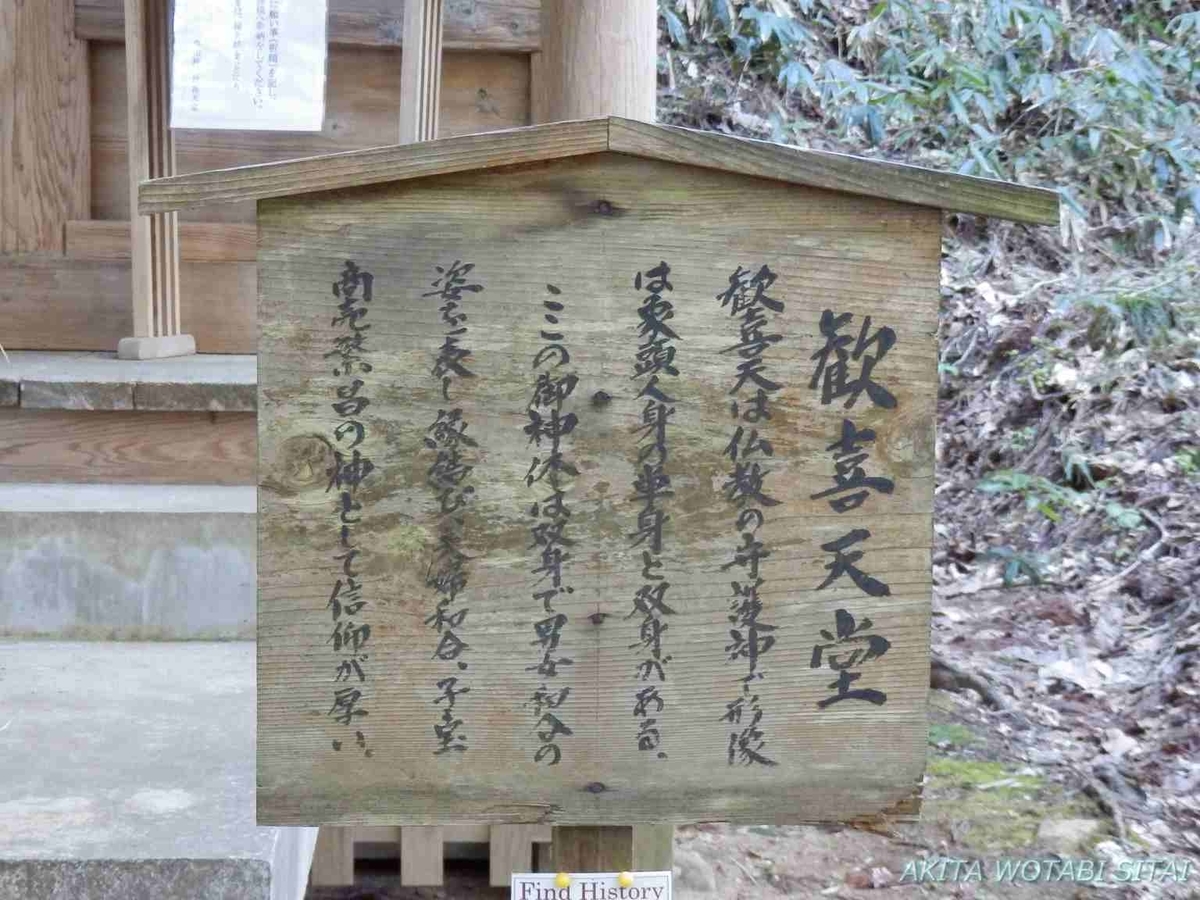 歓喜天堂
歓喜天は仏教の守護神で形像
は象頭人身の単身と双身がある、
ここの御神体は双身で男女和合の
姿を表し縁結び、夫婦和合、子宝
商売繁昌の神として信仰が厚い、
Find History
AKITA WOTABI SITAI